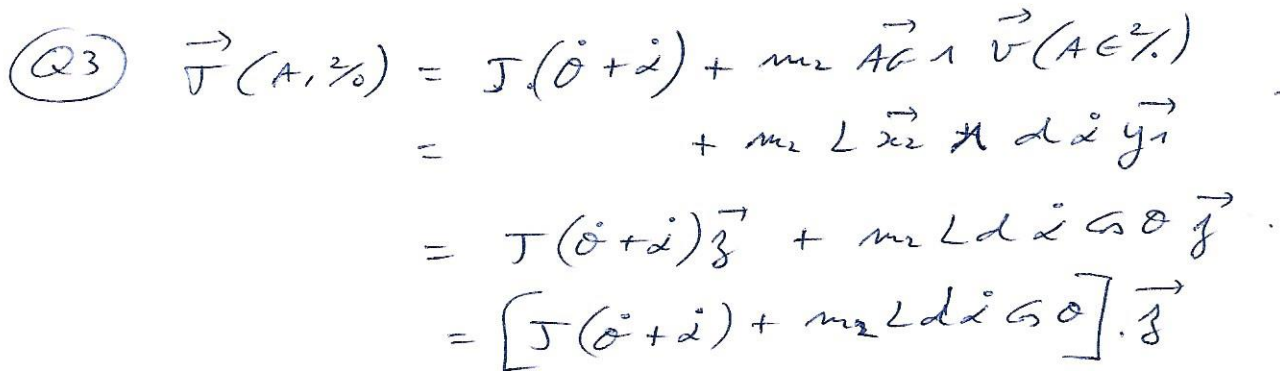 Q3 σ⃗(A, 2/0) = J.(θ̇ + α̇) + m₂ A⃗G ∧ v⃗(A∈2/0)
= + m₂ L x⃗₂ ∧ d α̇ y⃗₁
= J(θ̇ + α̇) z⃗ + m₂ L d α̇ cos θ z⃗.
= [J(θ̇ + α̇) + m₂ L d α̇ cos θ]. z⃗